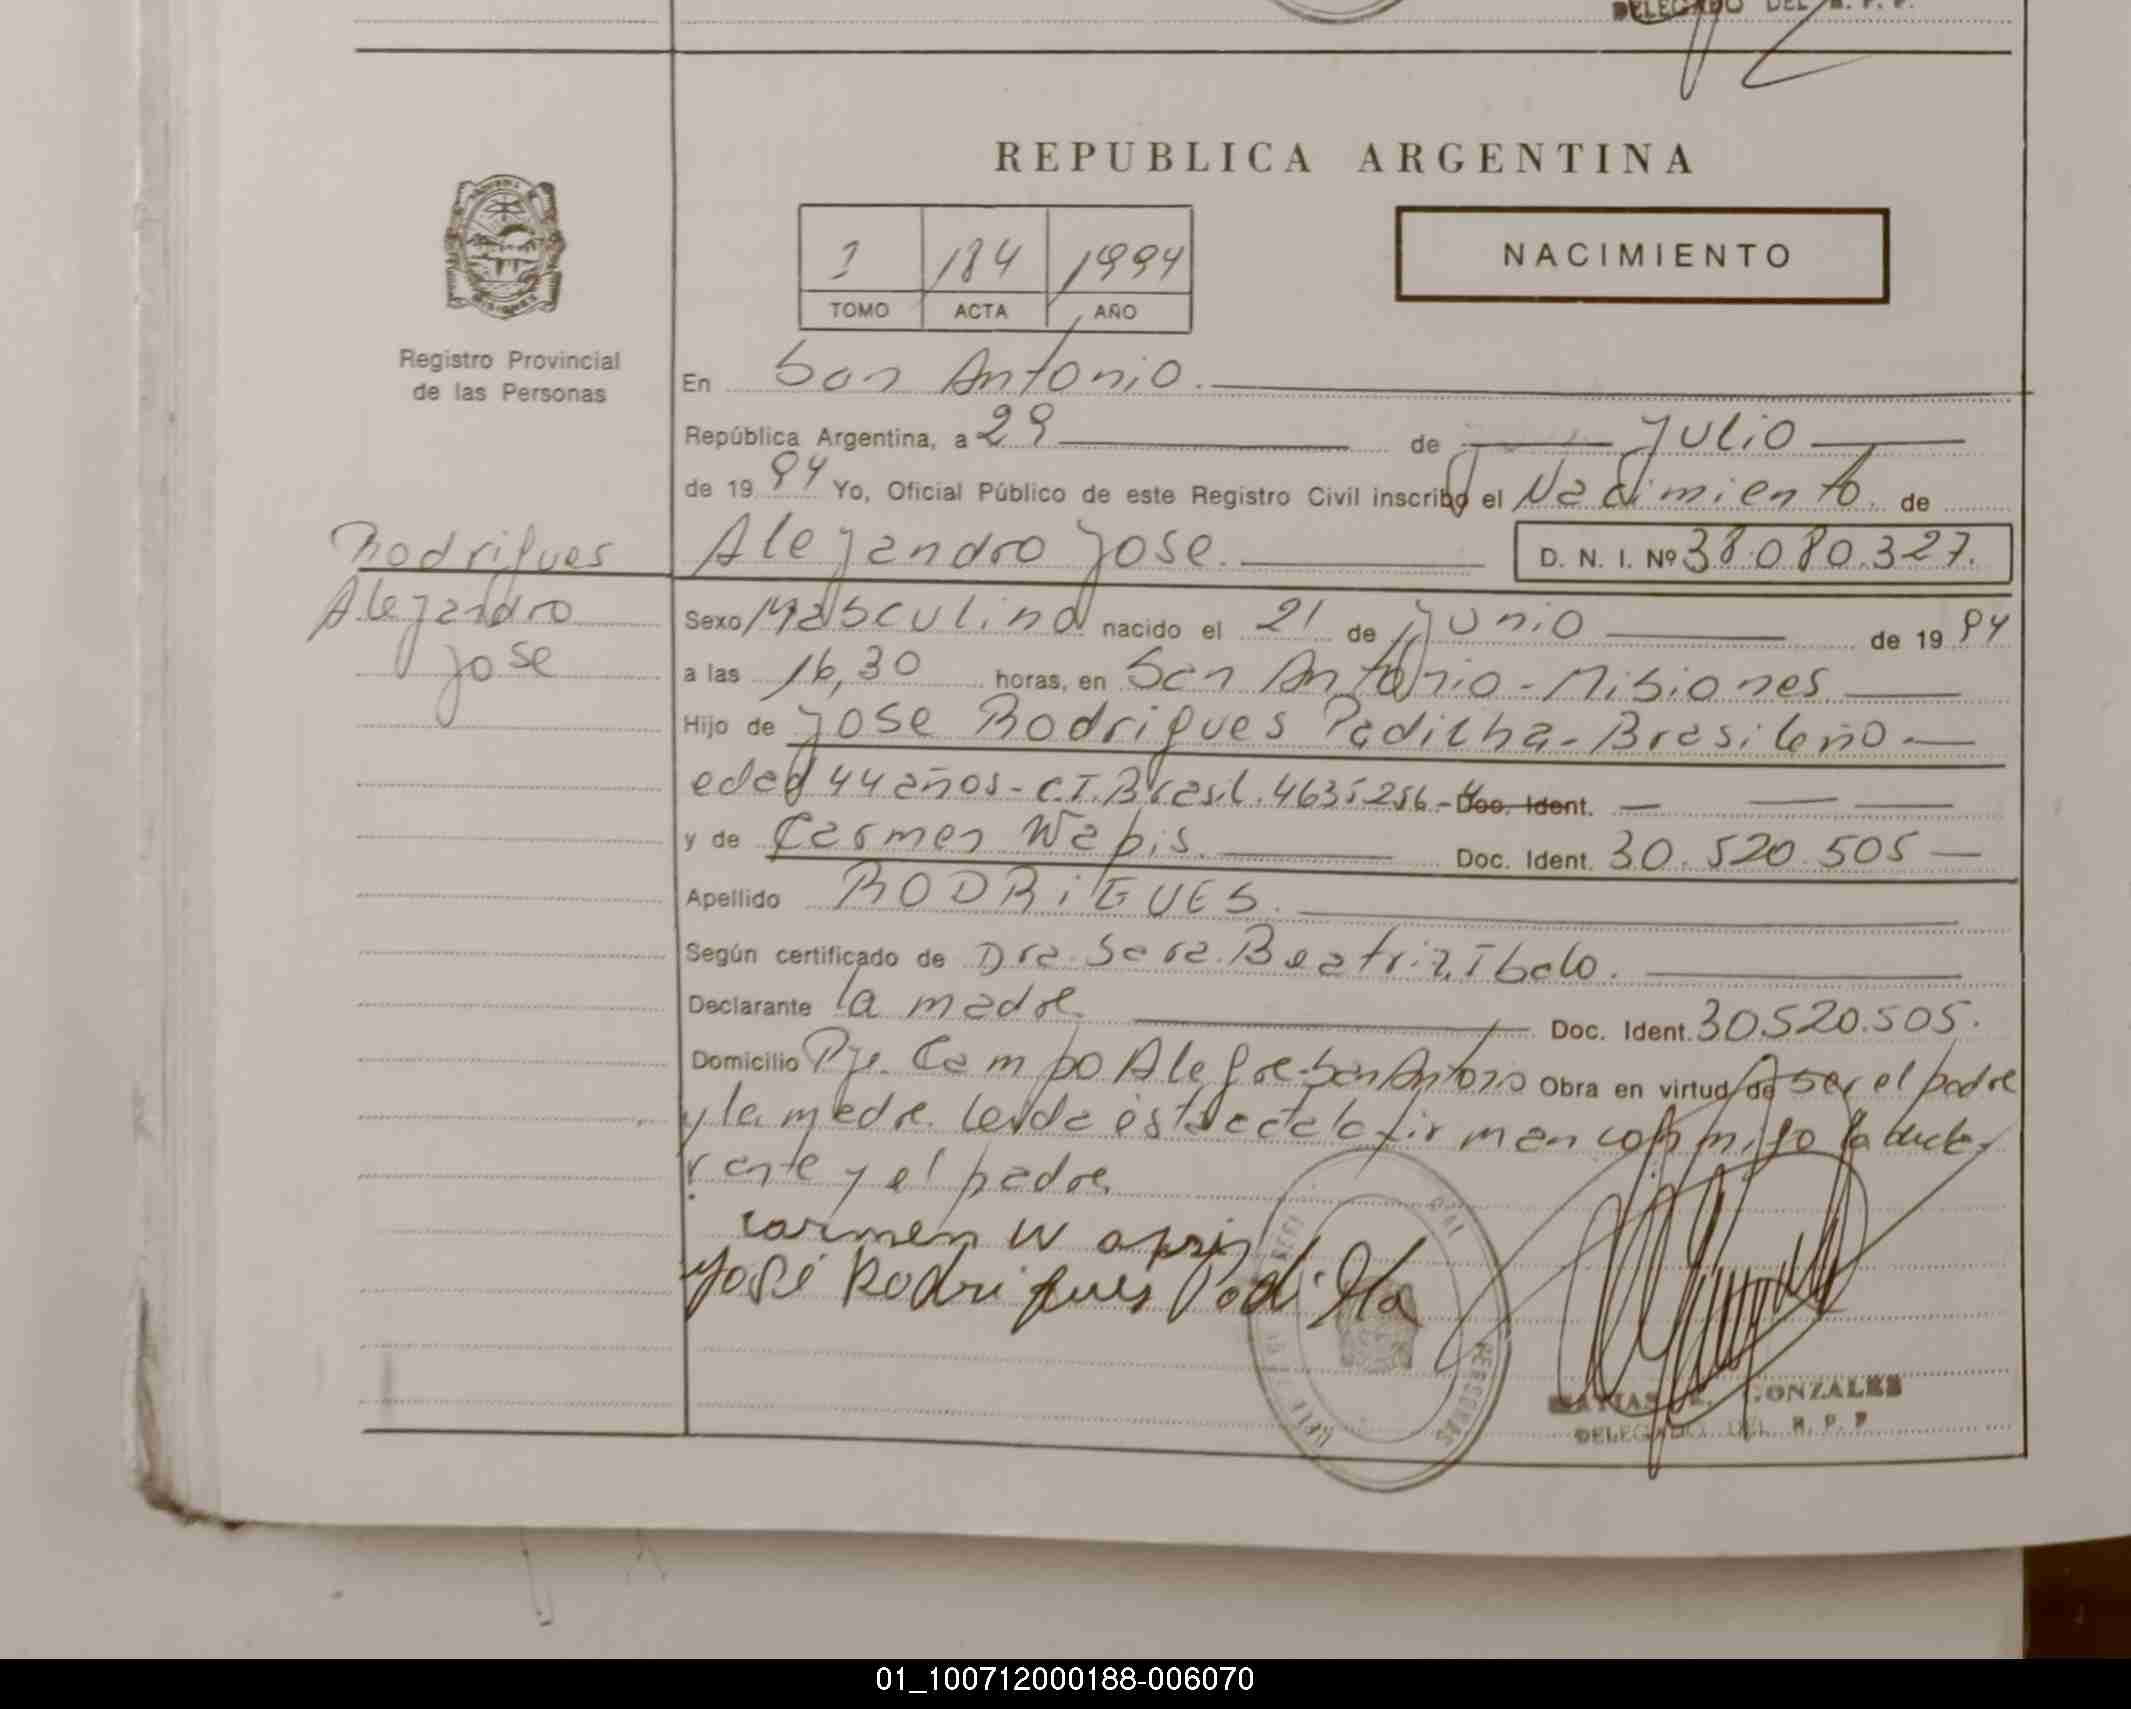 DELEGADO DEL R. P. P.
REPUBLICA ARGENTINA
1 184 1994
TOMO ACTA AÑO
NACIMIENTO
Registro Provincial
de las Personas
En San Antonio.
República Argentina, a 29 de Julio
de 19 94 Yo, Oficial Público de este Registro Civil inscribo el Nacimiento de
Rodrigues
Alejandro
Jose
Alejandro Jose. D. N. I. Nº 38.080.327.
Sexo Masculino nacido el 21 de Junio de 19 94
a las 16,30 horas, en San Antonio - Misiones
Hijo de Jose Rodrigues Padilha - Brasileño -
edad 44 años - C.I. Brasil. 4635256 - Doc. Ident.
y de Carmen Wapis. Doc. Ident. 30.520.505
Apellido RODRIGUES.
Según certificado de Dra. Sara Beatriz Ibalo.
Declarante la madre Doc. Ident. 30.520.505.
Domicilio Pje. Campo Alegre - San Antonio Obra en virtud de ser el padre
y la madre leida esta acta la firman conmigo la decla-
rante y el padre
carmen W
José Rodrigues Padilla
PERSONAS
GONZALES
DELEGADO DEL R. P. P
01_100712000188-006070